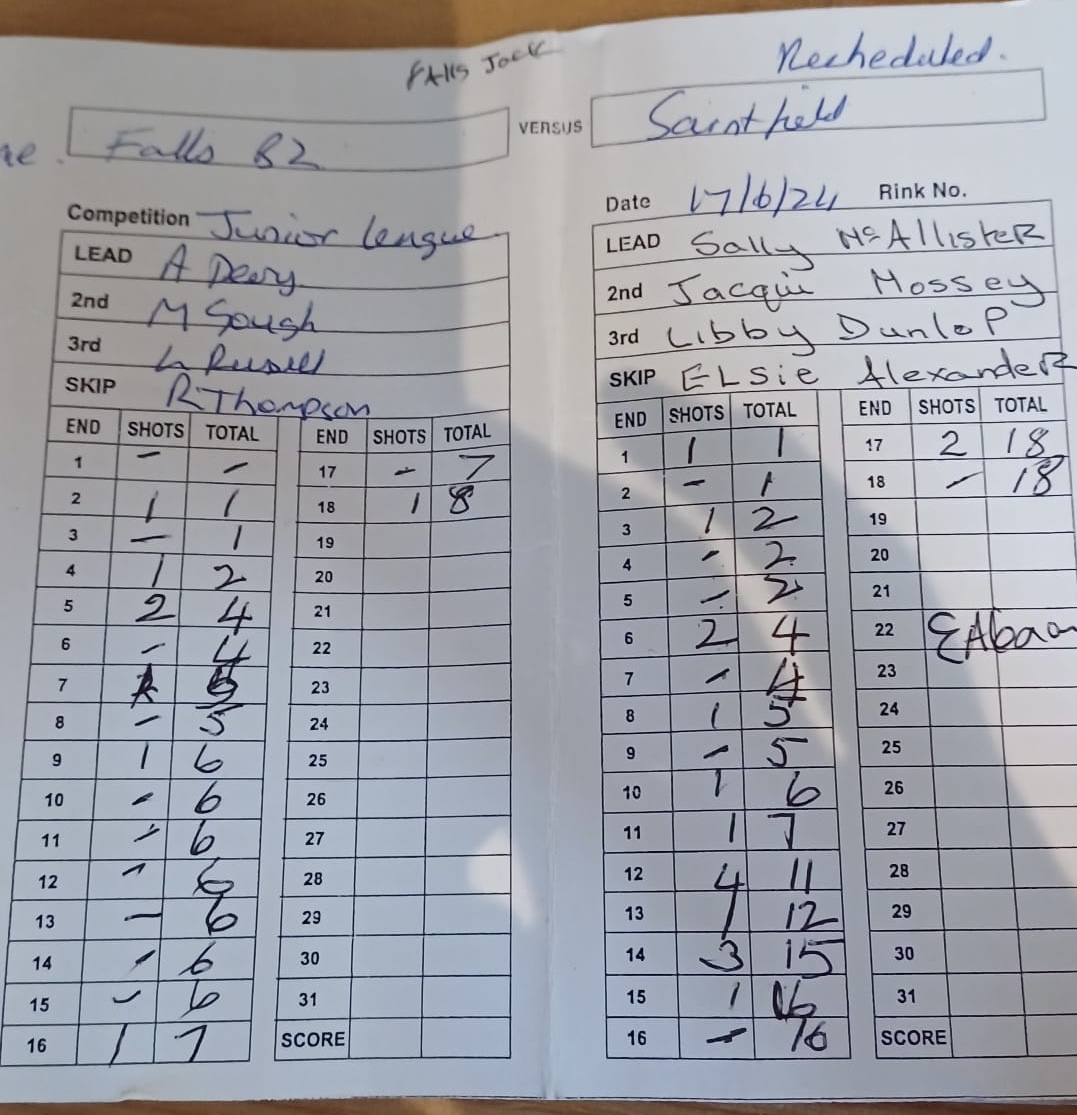 FAllS Jack
Recheduled.
Falls B2 VERSUS Saintfield
Competition Junior league
Date 17/6/24 Rink No.
LEAD A Deery
2nd M Gough
3rd L Russell
SKIP R Thompson
LEAD Sally Mc AllisteR
2nd Jacqui Mossey
3rd Libby DunloP
SKIP ELSie AlexandeR
END SHOTS TOTAL
1 - -
2 1 1
3 - 1
4 1 2
5 2 4
6 - 4
7 1 5
8 - 5
9 1 6
10 - 6
11 - 6
12 - 6
13 - 6
14 - 6
15 - 6
16 1 7
END SHOTS TOTAL
17 - 7
18 1 8
19
20
21
22
23
24
25
26
27
28
29
30
31
SCORE
END SHOTS TOTAL
1 1 1
2 - 1
3 1 2
4 - 2
5 - 2
6 2 4
7 - 4
8 1 5
9 - 5
10 1 6
11 1 7
12 4 11
13 1 12
14 3 15
15 1 16
16 - 16
END SHOTS TOTAL
17 2 18
18 - 18
19
20
21
22
23
24
25
26
27
28
29
30
31
SCORE